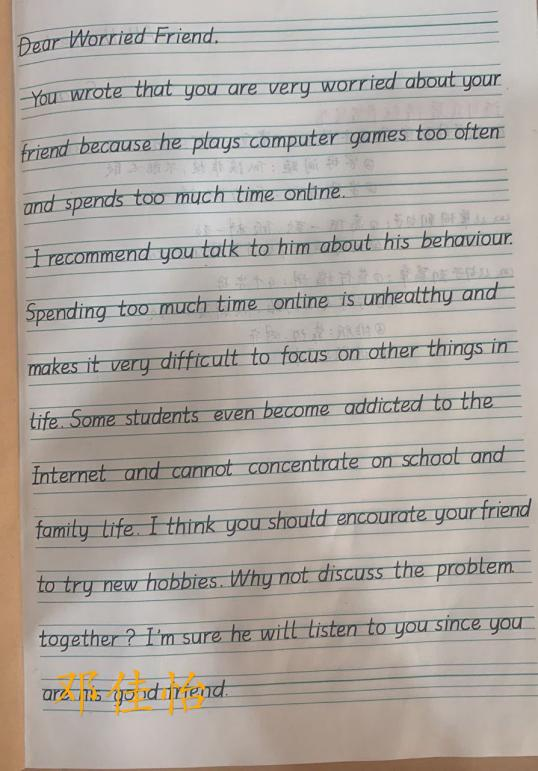 Dear Worried Friend.
You wrote that you are very worried about your
friend because he plays computer games too often
and spends too much time online.
I recommend you talk to him about his behaviour.
Spending too much time online is unhealthy and
makes it very difficult to focus on other things in
life. Some students even become addicted to the
Internet and cannot concentrate on school and
family life. I think you should encourate your friend
to try new hobbies. Why not discuss the problem
together? I'm sure he will listen to you since you
are his good friend.
邓佳怡